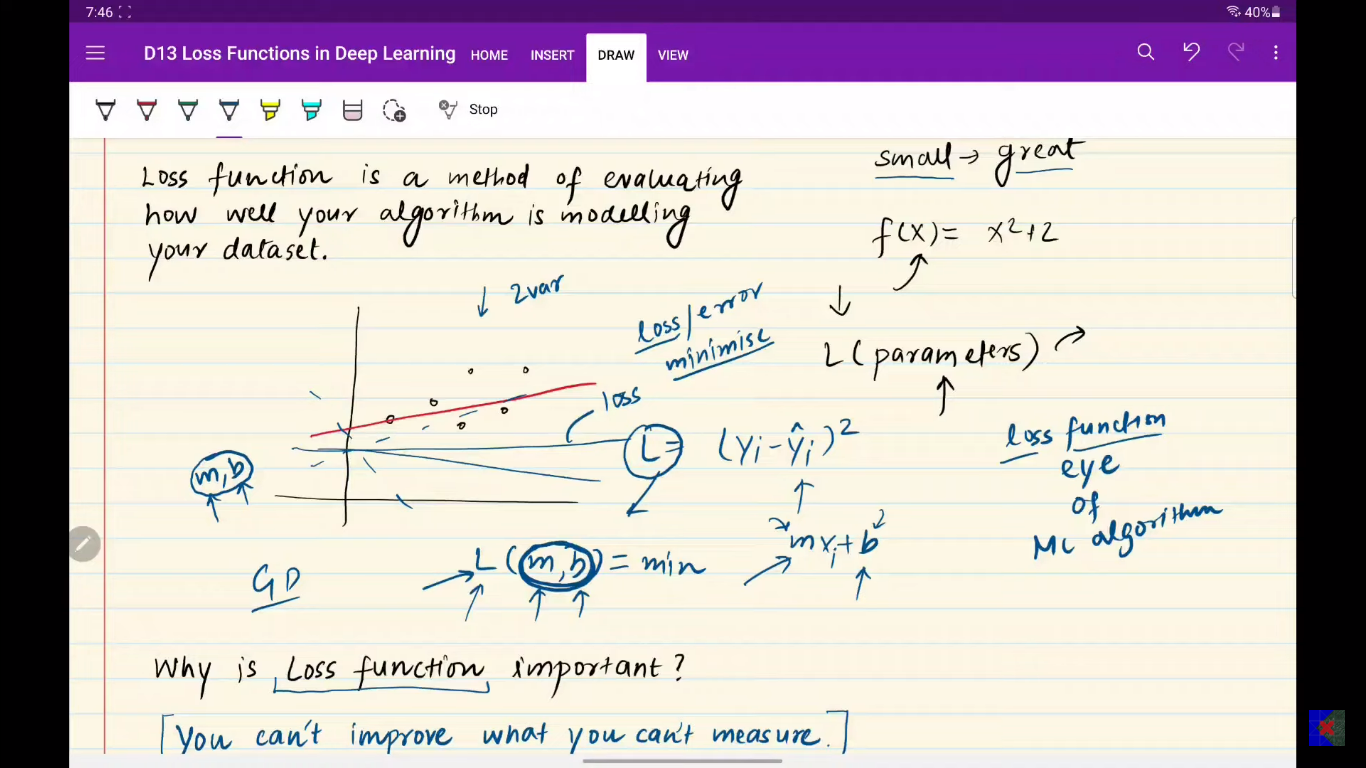 7:46
40%
D13 Loss Functions in Deep Learning
HOME INSERT DRAW VIEW
Stop
Loss function is a method of evaluating
how well your algorithm is modelling
your dataset.
small → great
f(x) = x²+2
↓ 2var
loss/error
minimise
↓
L(parameters)
loss
L = (yi - ŷi)²
m,b
mxi + b
loss function
eye
of
ML algorithm
GD
→ L(m,b) = min
Why is Loss function important?
[You can't improve what you can't measure.]